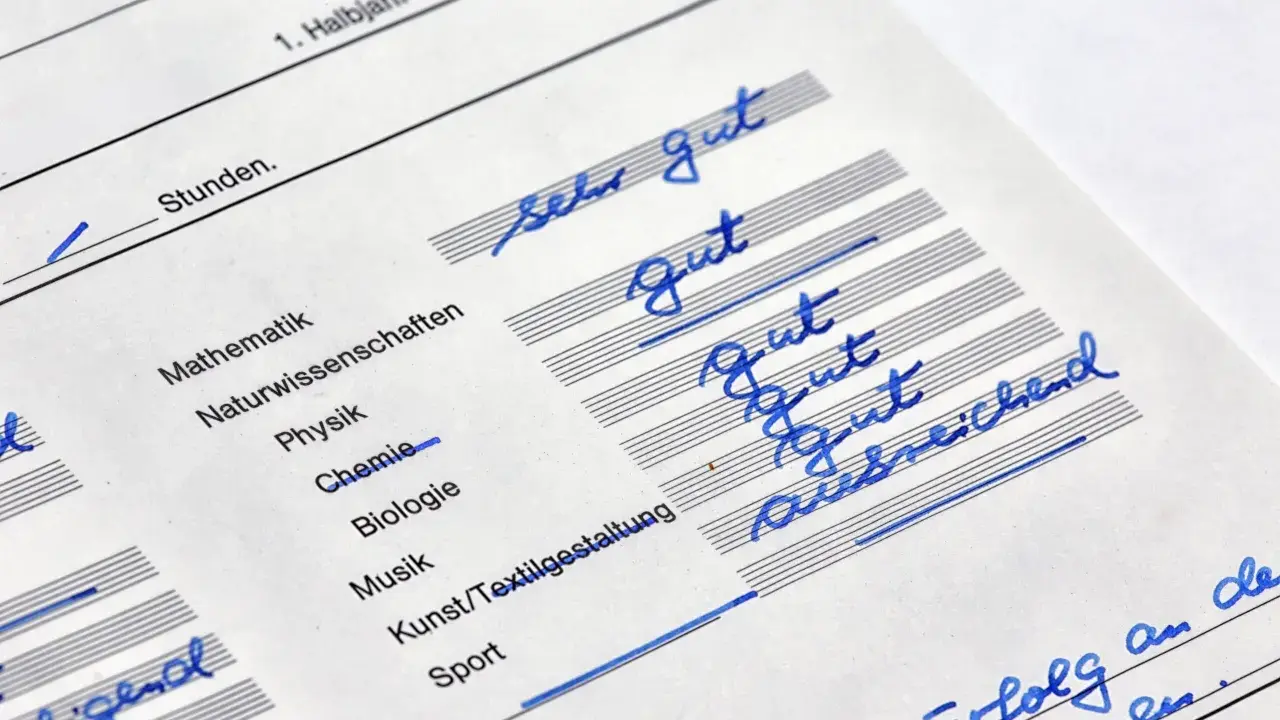 1. Halbjahr
Stunden.
Mathematik sehr gut
Naturwissenschaften
Physik gut
Chemie
Biologie gut
Musik gut
Kunst/Textilgestaltung gut
Sport ausreichend
igend
rfolg an de
en.